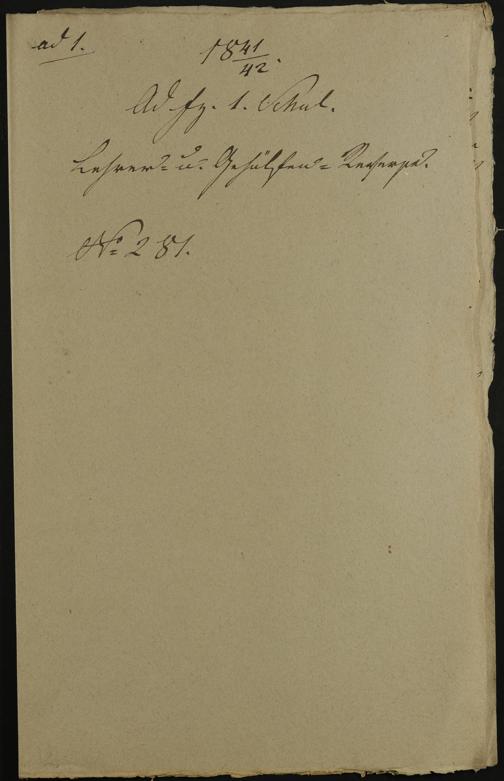 ad 1.
1841/42.
Ad fz. 1. Schul.
Lehrer= u. Gehülfen=
No 281.